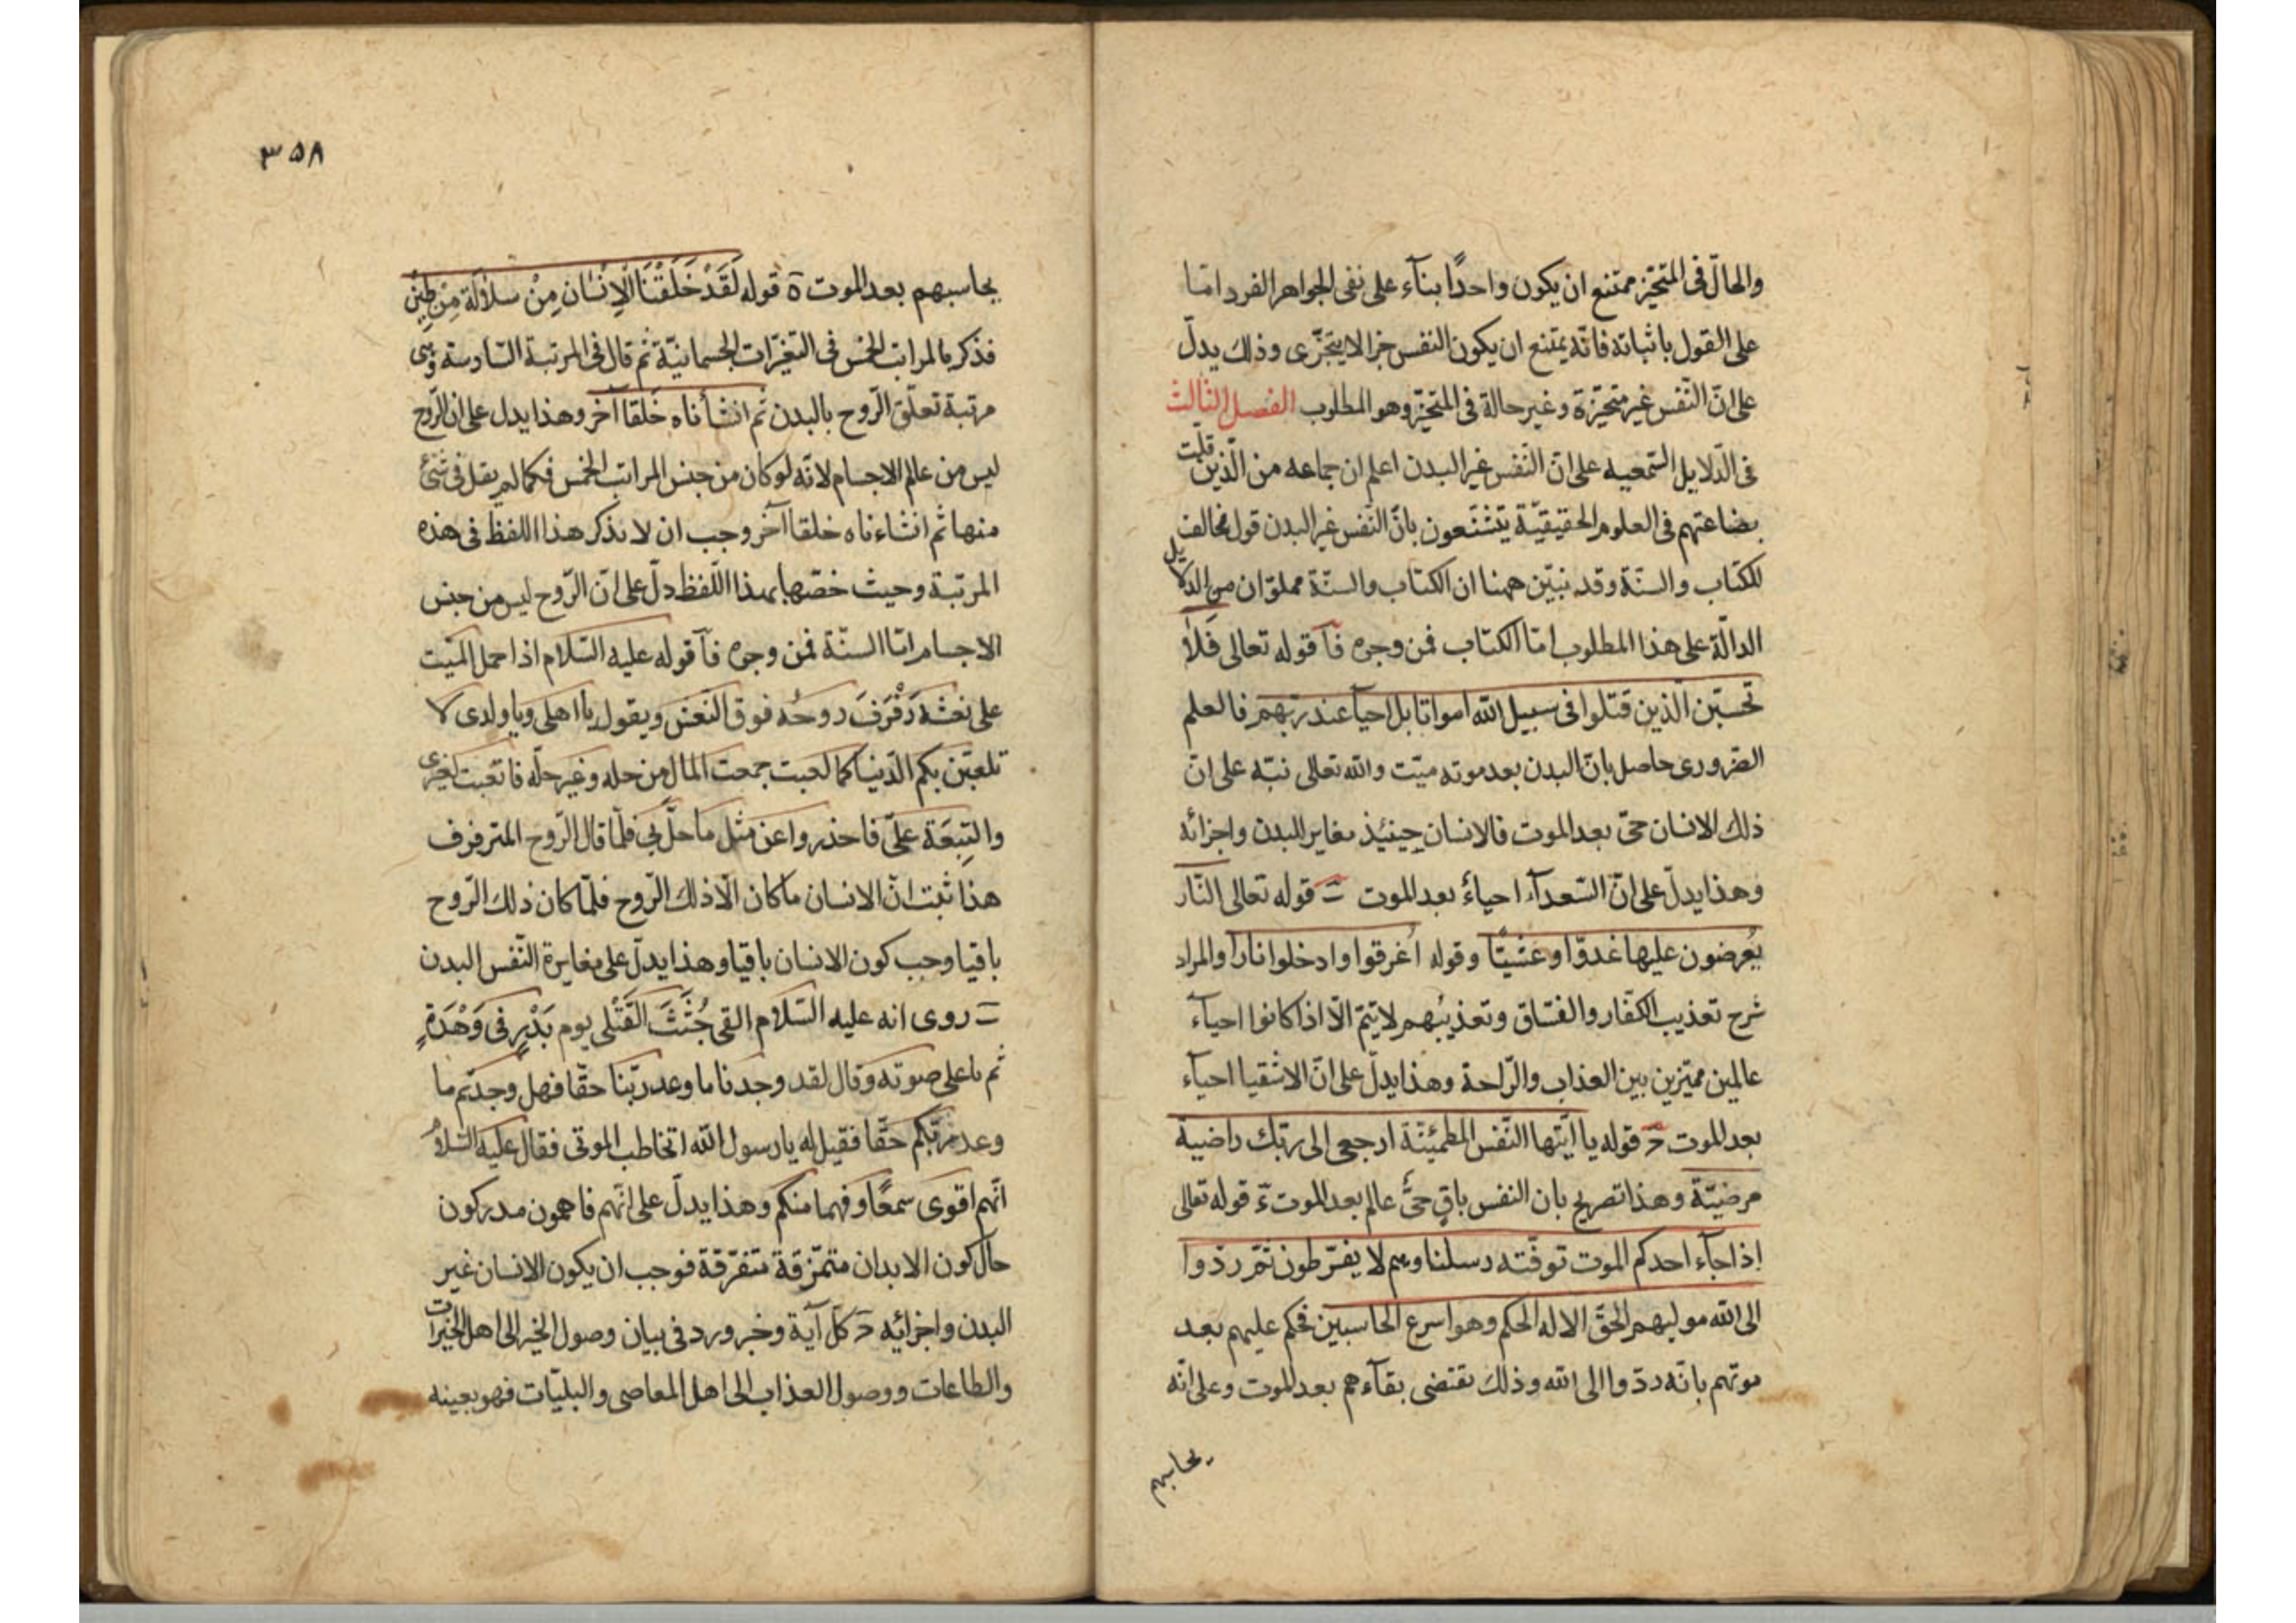 والحالّ فى المتحيّز ممتنع ان يكون واحدًا بنآء على نفى الجواهر الفرد امّا
على القول باثباته فانّه يمتنع ان يكون النفس جزا لا يتجزّى وذلك يدلّ
على انّ النّفس غير متحيّزة وغير حالة فى المتحيّز وهو المطلوب الفصل الثالث
فى الدّلايل السّمعيه على انّ النّفس غير البدن اعلم ان جماعه من الّذين قلّت
بضاعتهم فى العلوم الحقيقيّة يتشنّعون بانّ النّفس غير البدن قول مخالف
للكتاب والسنّة وقد نبيّن ههنا ان الكتاب والسنّة مملوّان من الدلايل
الدالّة على هذا المطلوب امّا الكتاب فمن وجوه فآ قوله تعالى فَلاٰ
تحسبّن الّذين قتلوا فى سبيل الله امواتا بل احيآ عند ربّهم فالعلم
الضرورى حاصل بانّ البدن بعد موته ميّت والله تعالى نبّه على انّ
ذلك الانسان حىّ بعد الموت فالانسان حينيذ مغاير للبدن واجزائه
وهذا يدلّ على انّ السّعدآء احياءٌ بعد الموت ب قوله تعالى النّار
يُعرضون عليها غدوّا وعشيّا وقوله اُغرقوا وادخلوا نارا والمراد
شرح تعذيب الكفّار والفسّاق وتعذيبُهم لا يتمّ الّا اذا كانوا احيآء
عالمين مميّزين بين العذاب والرّاحة وهذا يدلّ على انّ الاشقيا احياء
بعد الموت ج قوله يا ايّتها النّفس المطمئنّة ارجعى الى ربّك راضية
مرضيّة وهذا تصريح بان النفس باقٍ حىٌّ عالم بعد الموت د قوله تعالى
اِذا جآء احدكم الموت توفّته رسلنا وهم لا يفرّطون ثمّ ردّوا
الى الله موليهم الحقّ الا له الحكم وهو اسرع الحاسبين فحكم عليهم بعد
موتهم بانّه ردّوا الى الله وذلك يقتضى بقآءهم بعد الموت وعلى انّه
يحاسبهم
٣۵٨
يحاسبهم بعد الموت ة قوله لَقَدْ خَلَقْنَا الْاِنْسٰان مِنْ سلاٰلَة مِنْ طينٍ
فذكر بالمراتب الخمس فى التغيّرات الجسمانيّة ثم قال فى المرتبة السّادسة وهى
مرتبة تعلّق الرّوح بالبدن ثم انشأناه خَلقا آخر وهذا يدل على ان الرّوح
ليس من عالم الاجسام لانّه لو كان من جنس المراتب الخمس فكما لم يقل فى شئ
منها ثم انشاءناه خلقا آخر وجب ان لا يذكر هذا اللفظ فى هذه
المرتبة وحيث خصّها بهذا اللّفظ دلّ على انّ الرّوح ليس من جنس
الاجسام امّا السنّة فمن وجوه فآ قوله عليه السّلام اذا حمل الميّت
على نعشه رَفْرَفَ روحُه فوق النّعش ويقول يا اهلى ويا ولدى لا
تلعبّن بكم الدّنيا كما لعبت جمعت المال من حله وغير حلّه فاتعبت لغيرى
والتبِعَة علىّ فاحذروا عن مثل ما حلّ بى فلمّا قال الرّوح المترفرف
هذا ثبت انّ الانسان ما كان الّا ذلك الرّوح فلمّا كان ذلك الرّوح
باقيا وجب كون الانسان باقيا وهذا يدلّ على مغايرة النّفس البدن
ب روى انه عليه السّلام القى جُثَثَ القَتْلى يوم بَدْرٍ فى وَهْدَةٍ
ثم باعلى صوته وقال لقد وجدنا ما وعد ربّنا حقّا فهل وجدتم ما
وعد ربّكم حقّا فقيل له يا رسول الله اتخاطب الموتى فقال عليه السّلامُ
انّهم اقوى سمعًا وفهما منكم وهذا يدلّ على انّهم فاهمون مدركون
حال كون الابدان متمزّقة متفرّقة فوجب ان يكون الانسان غير
البدن واجزائِه ج كلّ آية وخبر ورد فى بيان وصول الخير الى اهل الخيرات
والطاعات ووصول العذاب الى اهل المعاصى والبليّات فهو بعينه